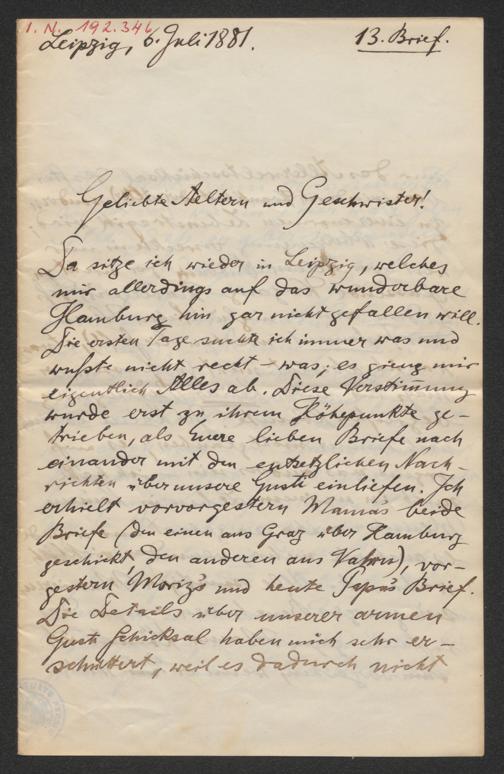 I. N. 192.346
Leipzig, 6. Juli 1881. 13. Brief.
Geliebte Aeltern und Geschwister!
Da sitze ich wieder in Leipzig, welches
mir allerdings auf das wunderbare
Hamburg hin gar nicht gefallen will.
Die ersten Tage suchte ich immer was und
wußte nicht recht – was; es gieng mir
eigentlich Alles ab. Diese Verstimmung
wurde erst zu ihrem Höhepunkte ge-
trieben, als Euere lieben Briefe nach
einander mit den entsetzlichen Nach-
richten über unsere Gusti einliefen. Ich
erhielt vorvorgestern Mamas beide
Briefe (den einen aus Graz über Hamburg
geschickt, den anderen aus Vahrn), vor-
gestern Moriz's und heute Pepis Brief.
Die Details über unserer armen
Gusti Schicksal haben mich sehr er-
schüttert, weil es dadurch nicht